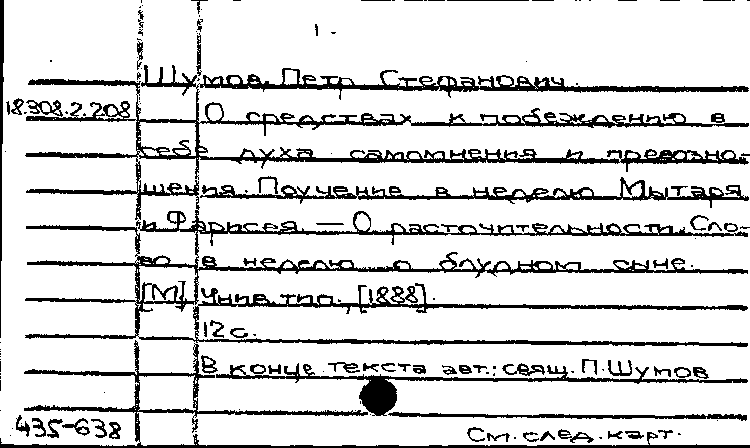 1.
Шумов, Петр Стефанович.
18.308.2.208 О средствах к побеждению в
себе духа самомнения и превозно-
шения. Поучение в неделю Мытаря
и Фарисея. — О расточительности. Сло-
во в неделю о блудном сыне.
[М] Унив. тип., [1888].
12 с.
В конце текста авт.: свящ. П. Шумов
435-638 См. след. карт.